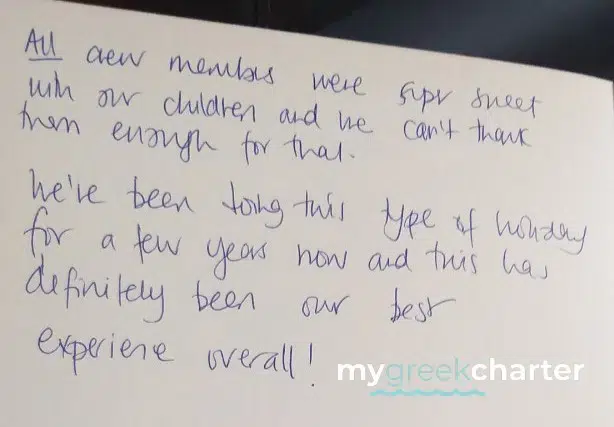 All crew members were super sweet
with our children and we can't thank
them enough for that.
We've been doing this type of holiday
for a few years now and this has
definitely been our best
experience overall!
mygreekcharter